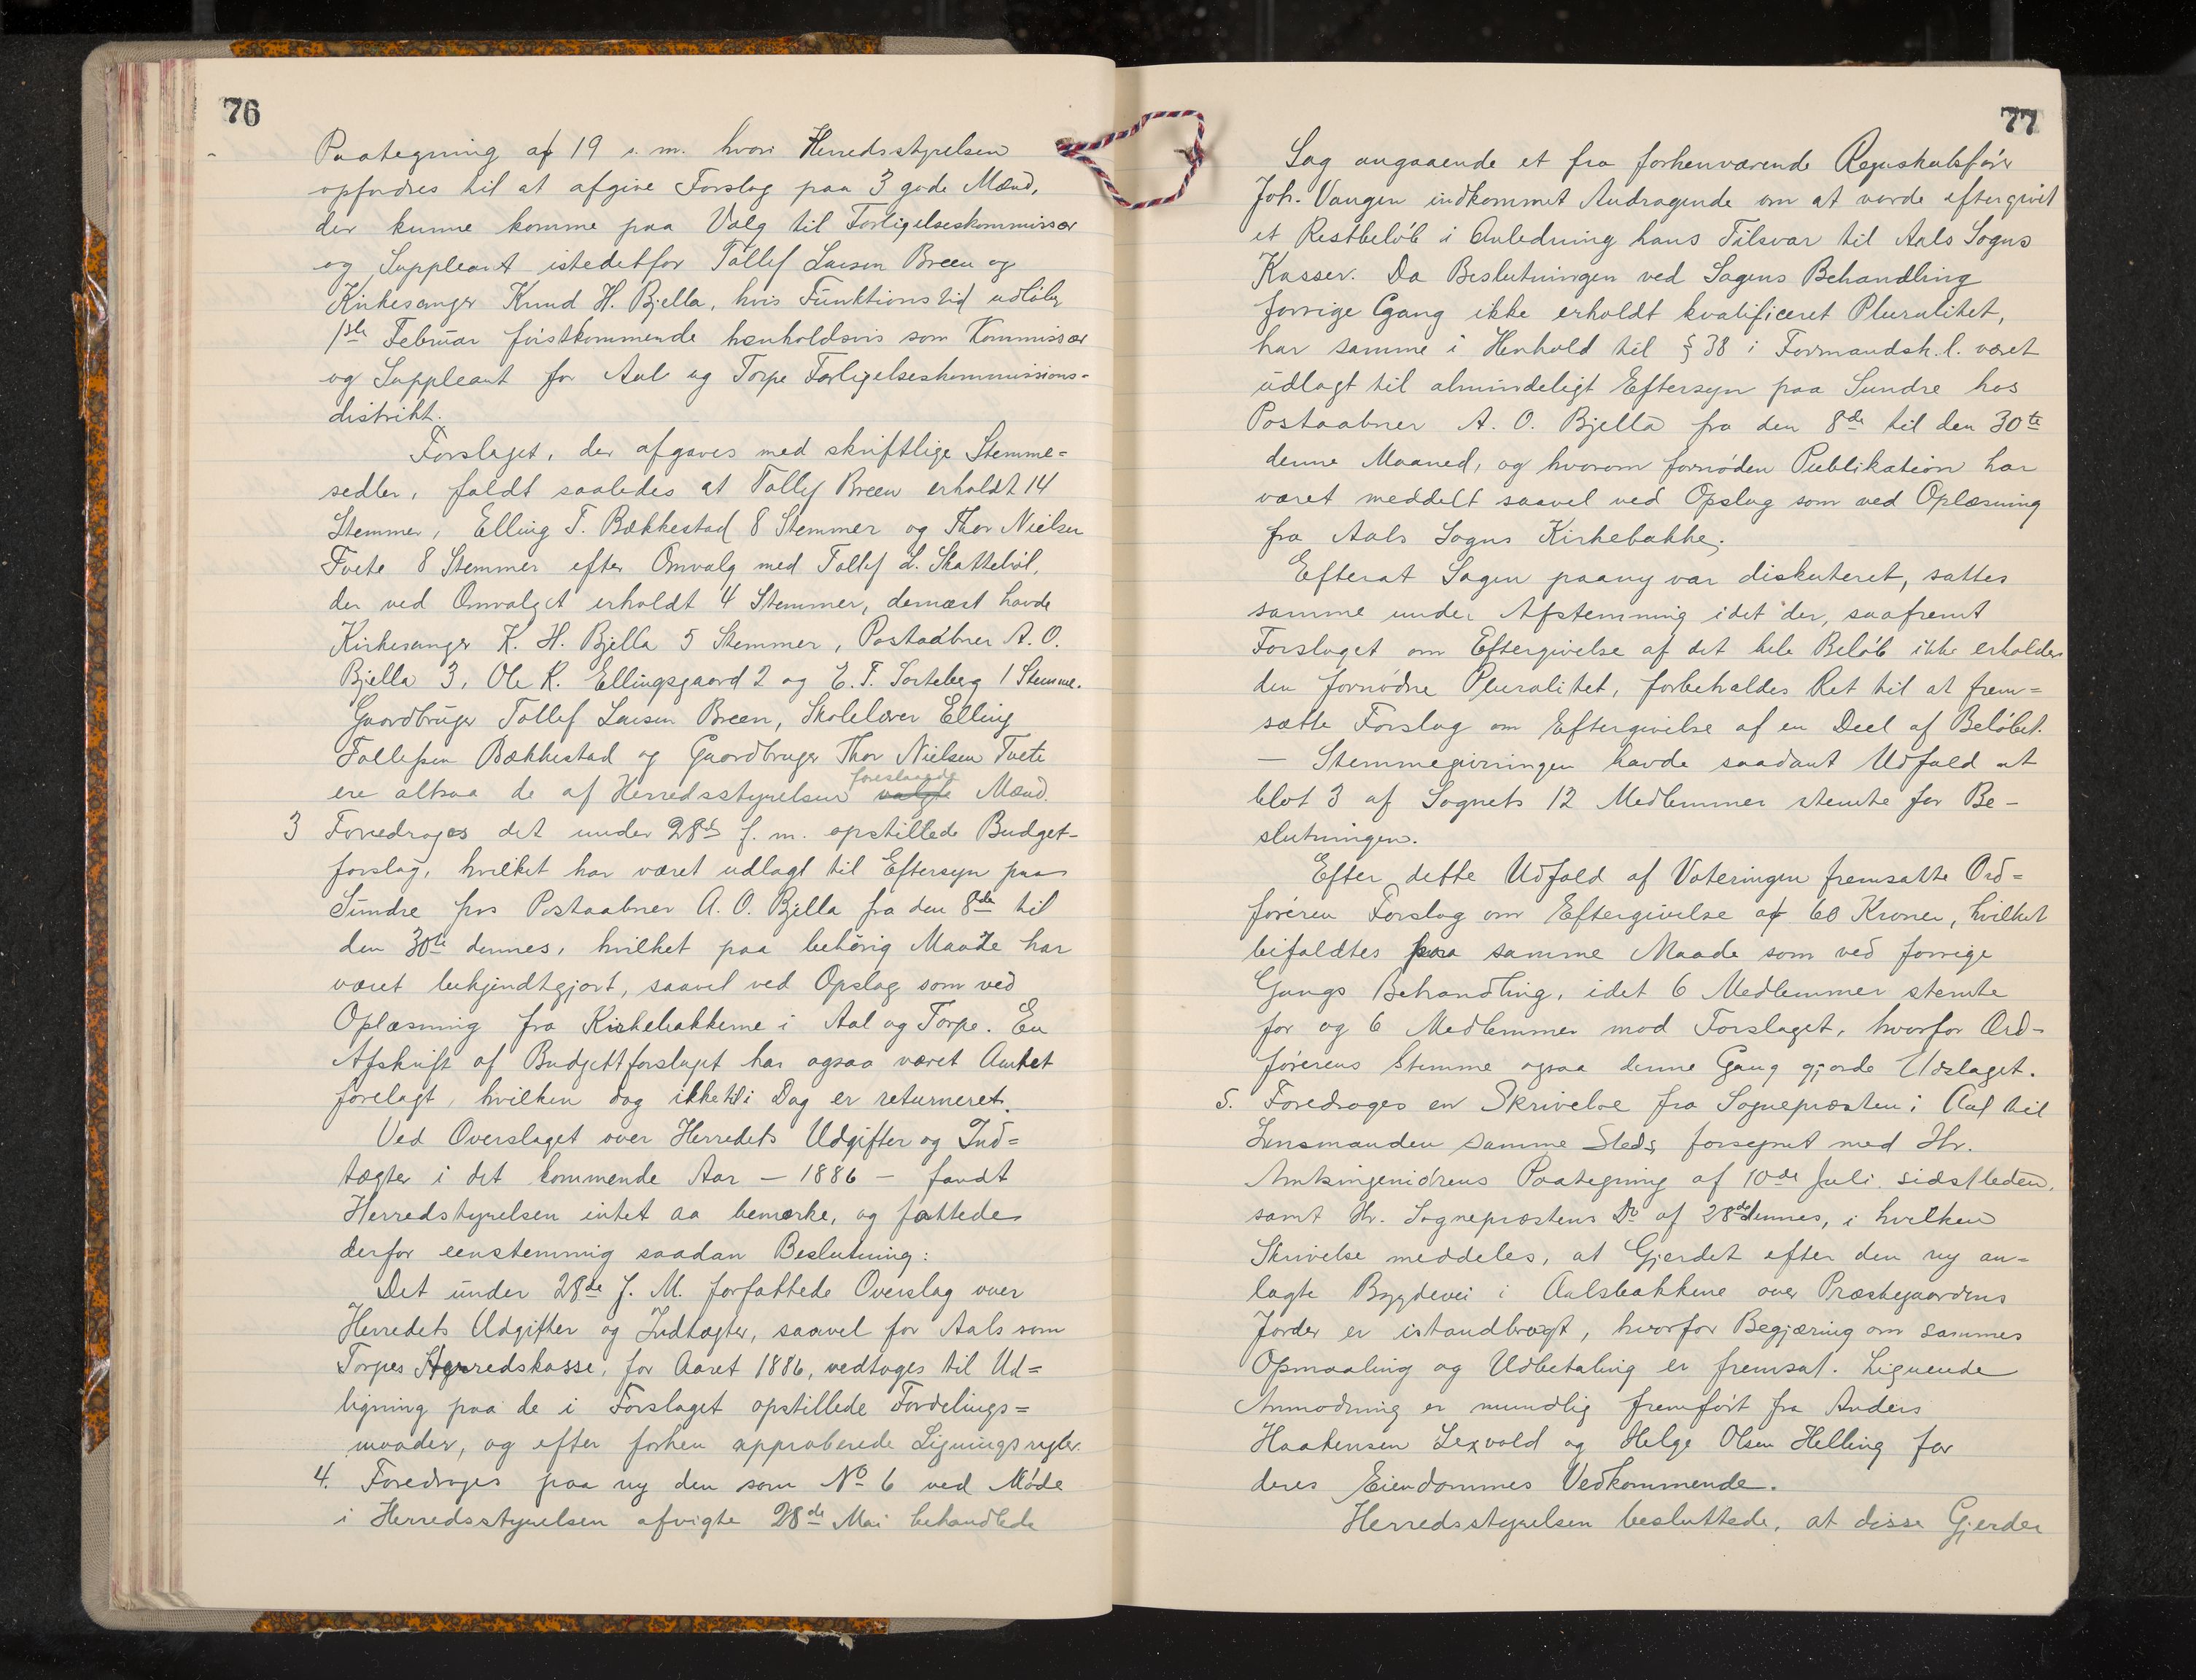 76
Paategning af 19 s. m. hvori Herredsstyrelsen
opfordres til at afgive Forslag paa 3 gode Mænd,
der kunne komme paa Valg til Forligelseskommissær
og Suppleant istedetfor Tollef Larsen Breen og
Kirkesanger Knud H. Bjella, hvis Funktionstid udløber
1ste Februar førstkommende henholdsvis som Kommissær
og Suppleant for Aal og Torpe Forligelseskommissions-
distrikt.
Forslaget, der afgaves med skriftlige Stemme=
sedler, faldt saaledes at Tollef Breen erholdt 14
Stemmer, Elling T. Bækkestad 8 Stemmer og Thor Nielsen
Tvete 8 Stemmer efter Omvalg med Tollef L. Skattebøl,
der ved Omvalget erholdt 4 Stemmer, dernæst havde
Kirkesanger K. H. Bjella 5 Stemmer, Postaabner A. O.
Bjella 3, Ole K. Ellingsgaard 2 og E. T. Sorteberg 1 Stemme.
Gaardbruger Tollef Larsen Breen, Skolelærer Elling
Tollefsen Bækkestad og Gaardbruger Thor Nielsen Tvete
foreslaaede
ere altsaa de af Herredsstyrelsen valgte Mænd.
3 Foredroges det under 28de f. m. opstillede Budget-
forslag, hvilket har været udlagt til Eftersyn paa
Sundre hos Postaabner A. O. Bjella fra den 8de til
den 30te dennes, hvilket paa behørig Maade har
været bekjendtgjort, saavel ved Opslag som ved
Oplæsning fra Kirkebakkerne i Aal og Torpe. En
Afskrift af Budgettforslaget har ogsaa været Amtet
forelagt, hvilken dog ikke til i Dag er returneret.
Ved Overslaget over Herredets Udgifter og Ind=
tægter i det kommende Aar – 1886 – fandt
Herredstyrelsen intet aa bemærke, og fattede
derfor eenstemmig saadan Beslutning:
Det under 28de f. M. forfattede Overslag over
Herredets Udgifter og Indtægter, saavel for Aals som
Torpes Herredskasse, for Aaret 1886, vedtages til Ud=
ligning paa de i Forslaget opstillede Fordelings=
maader, og efter forhen approberede Ligningsregler.
4. Foredroges paa ny den som No 6 ved Møde
i Herredsstyrelsen afvigte 28de Mai behandlede
77
Sag angaaende et fra forhenværende Regnskabsfører
Joh. Vangen indkommet Andragende om at vorde eftergivet
et Restbeløb i Anledning hans Tilsvar til Aals Sogns
Kasser. Da Beslutningen ved Sagens Behandling
forrige Gang ikke erholdt kvalificeret Pluralitet,
har samme i Henhold til § 38 i Formandsk. l. været
udlagt til almindeligt Eftersyn paa Sundre hos
Postaabner A. O. Bjella fra den 8de til den 30te
denne Maaned, og hvorom fornøden Publikation har
været meddelt saavel ved Opslag som ved Oplæsning
fra Aals Sogns Kirkebakke.
Efterat Sagen paany var diskuteret, sattes
samme under Afstemning idet der, saafremt
Forslaget om Eftergivelse af det hele Beløb ikke erholder
den fornødne Pluralitet, forbeholdes Ret til at frem=
sætte Forslag om Eftergivelse af en Deel af Beløbet.
– Stemmegivningen havde saadant Udfald at
blot 3 af Sognets 12 Medlemmer stemte for Be-
slutningen.
Efter dette Udfald af Voteringen fremsatte Ord=
føreren Forslag om Eftergivelse af 60 Kroner, hvilket
bifaldtes paa samme Maade som ved forrige
Gangs Behandling, idet 6 Medlemmer stemte
for og 6 Medlemmer mod Forslaget, hvorfor Ord-
førerens Stemme ogsaa denne Gang gjorde Udslaget.
5. Foredroges en Skrivelse fra Sognepræsten i Aal til
Lensmanden samme Steds, forsegnet med Hr.
Amtsingeniørens Paategning af 10de Juli sidstleden,
samt Hr. Sognepræstens Do af 28de dennes, i hvilken
Skrivelse meddeles, at Gjerdet efter den ny an=
lagte Bygdevei i Aalsbakkene over Præstegaardens
Jorder er istandbragt, hvorfor Begjæring om sammes
Opmaaling og Udbetaling er fremsat. Lignende
Anmodning er mundlig fremført fra Anders
Haakensen Lexvold og Helge Olsen Helling for
deres Eiendommes Vedkommende.
Herredsstyrelsen besluttede, at disse Gjerder